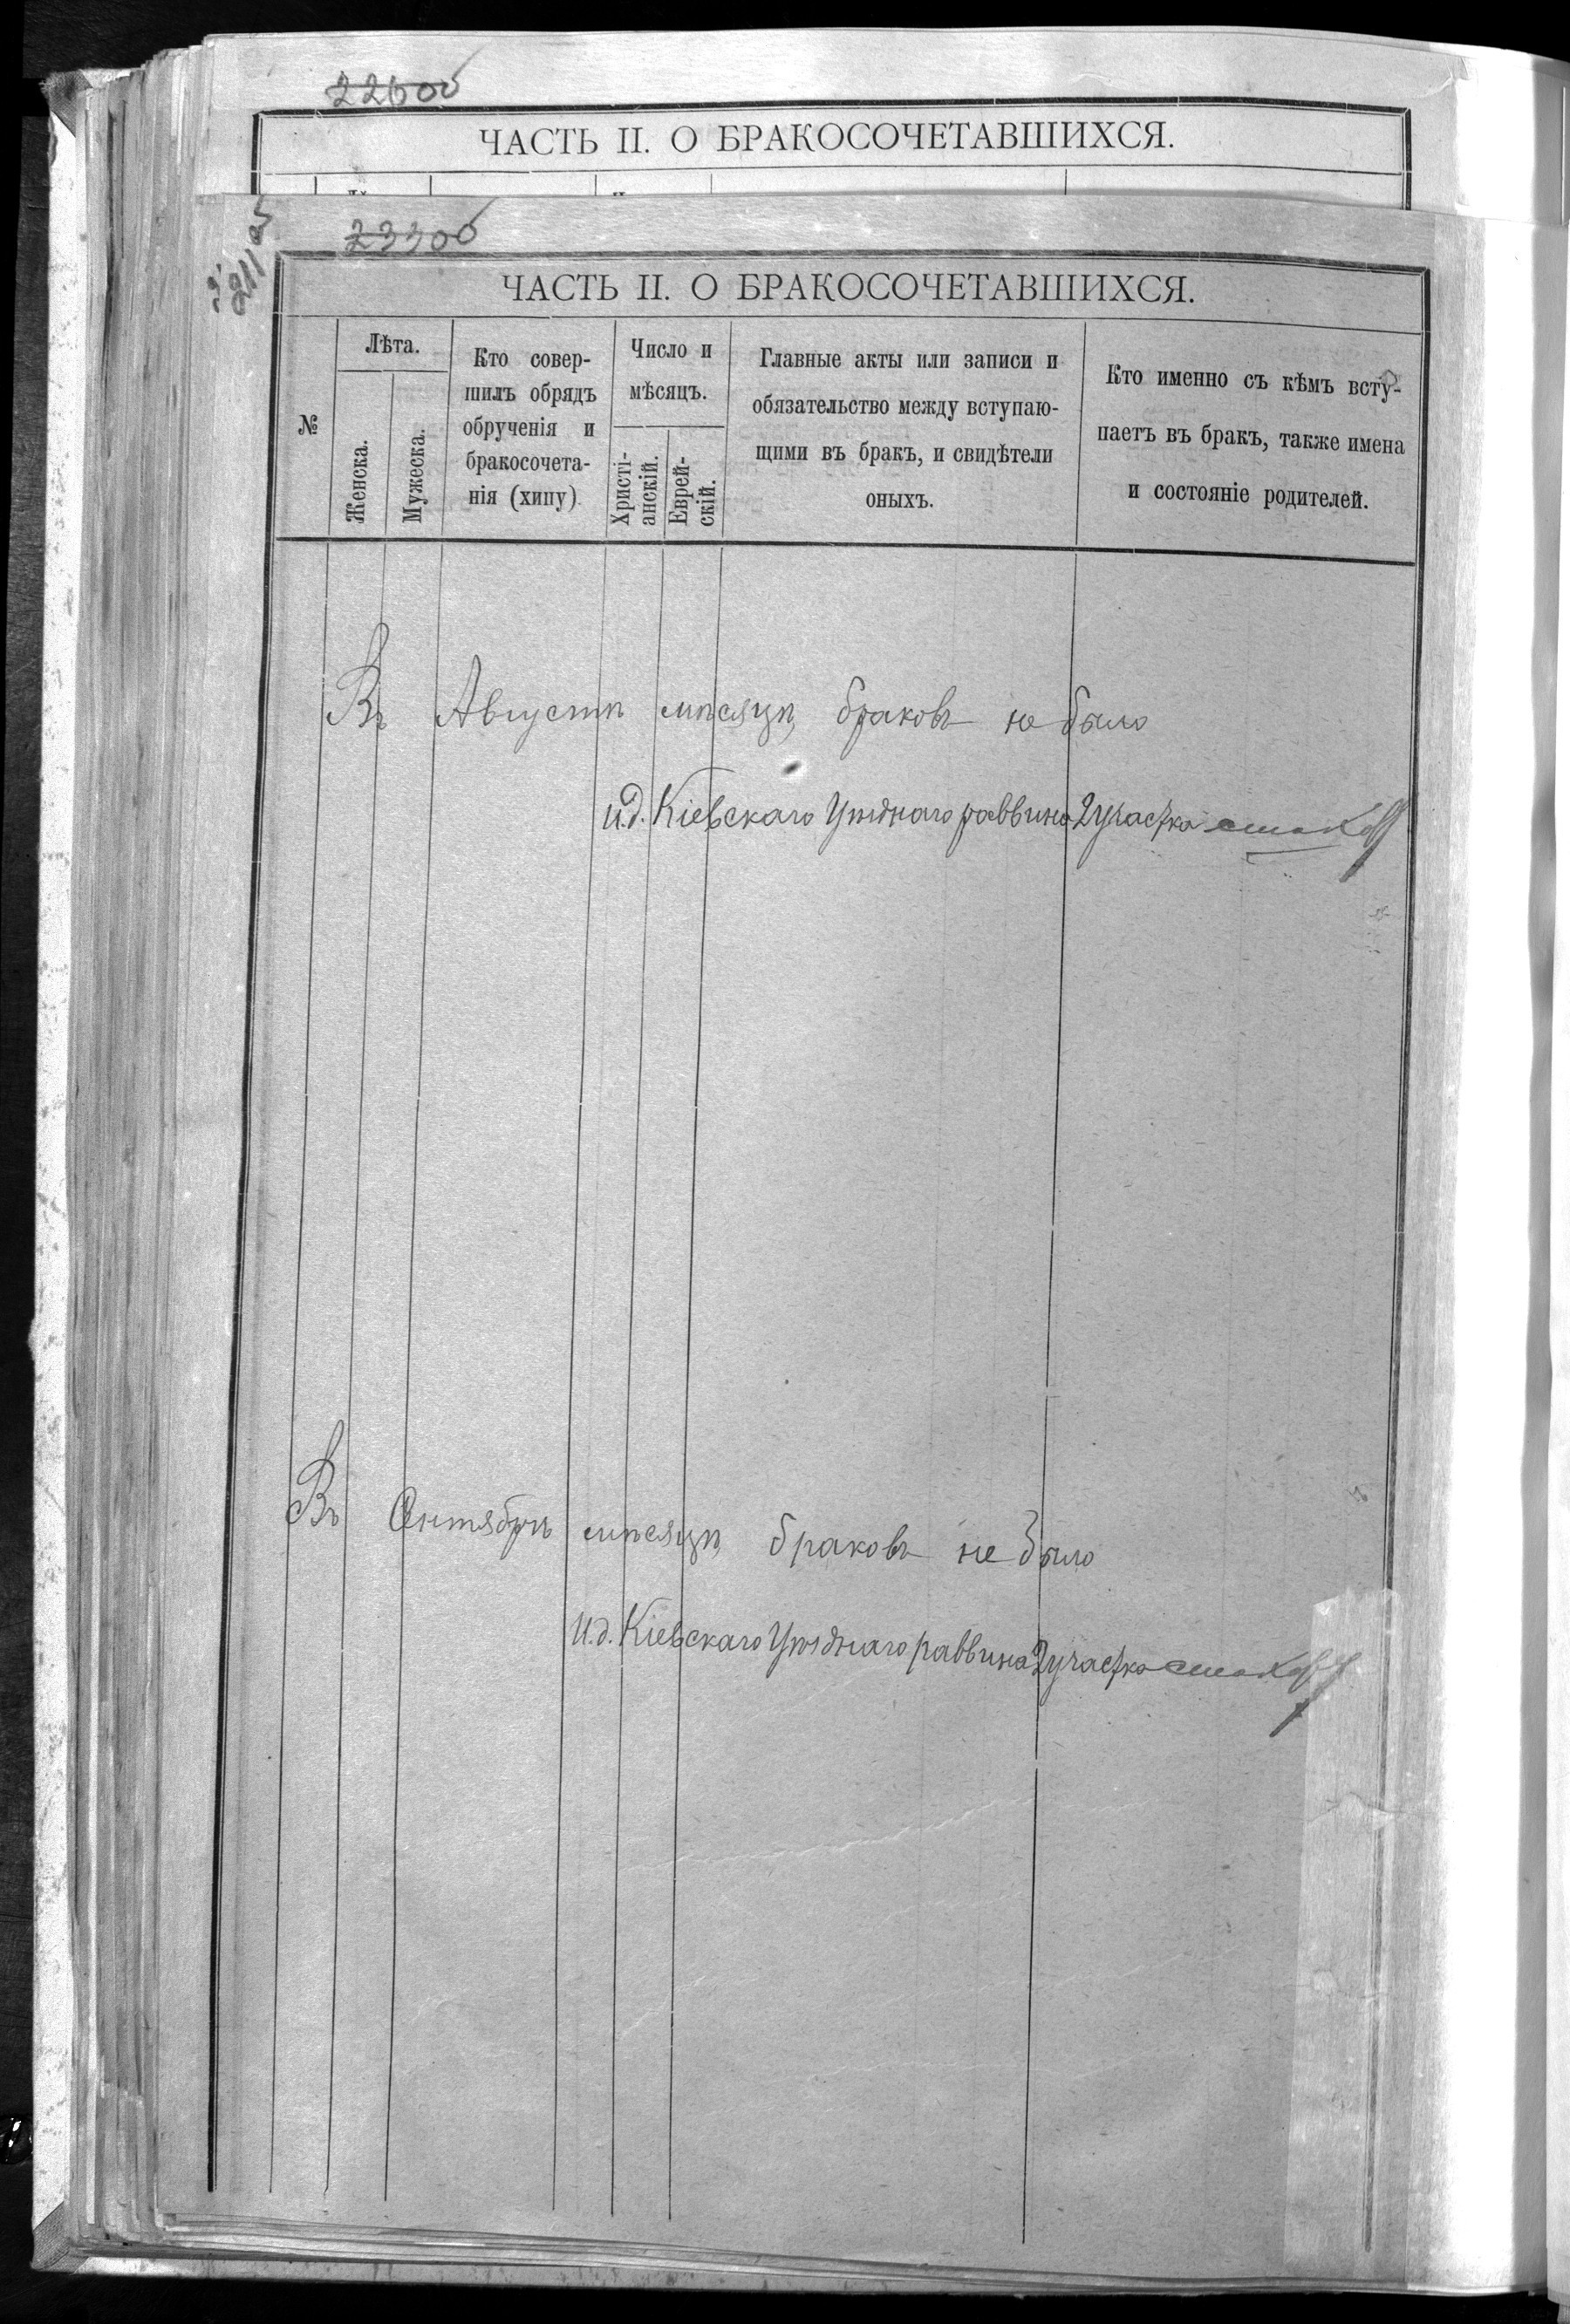 22600
ЧАСТЬ II. О БРАКОСОЧЕТАВШИХСЯ.
23300
ЧАСТЬ II. О БРАКОСОЧЕТАВШИХСЯ.
№
Лѣта.
Женска.
Мужеска.
Кто совер-
шилъ обрядъ
обрученія и
бракосочета-
нія (хипу)
Число и
мѣсяцъ.
Христі-
анскій.
Еврей-
скій.
Главные акты или записи и
обязательство между вступаю-
щими въ бракъ, и свидѣтели
оныхъ.
Кто именно съ кѣмъ всту-
паетъ въ бракъ, также имена
и состояніе родителей.
Въ Августѣ мѣсяцѣ браковъ не было
и.д. Кіевскаго Уѣзднаго раввина 2 участка
Въ Октябрѣ мѣсяцѣ браковъ не было
И.д. Кіевскаго Уѣзднаго раввина 2 участка